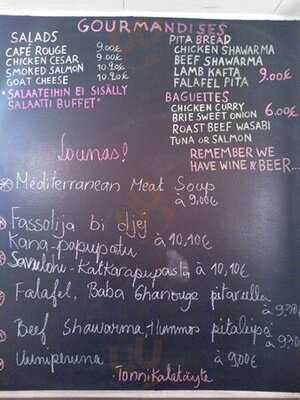 GOURMANDISES
SALADS
CAFÉ ROUGE 9.00€
CHICKEN CESAR 9.00€
SMOKED SALMON 10.20€
GOAT CHEESE 10.20€
*SALAATEIHIN EI SISÄLLY
SALAATTI BUFFET*
PITA BREAD
CHICKEN SHAWARMA
BEEF SHAWARMA
LAMB KAFTA 9.00€
FALAFEL PITA
BAGUETTES
CHICKEN CURRY 6.00€
BRIE SWEET ONION
ROAST BEEF WASABI
TUNA OR SALMON
REMEMBER WE
HAVE WINE & BEER...
Lounas!
Mediterranean Meat Soup
à 9,00€
Fassolija bi djej
Kana-papupatu à 10,10€
Savulohi-Kattarapupasta à 10,10€
Falafel, Baba Ghanouge pitarulla
Beef Shawarma, Hummos pitaleipä
Uuniperuna à 9,00€
Tonnikalatäyte